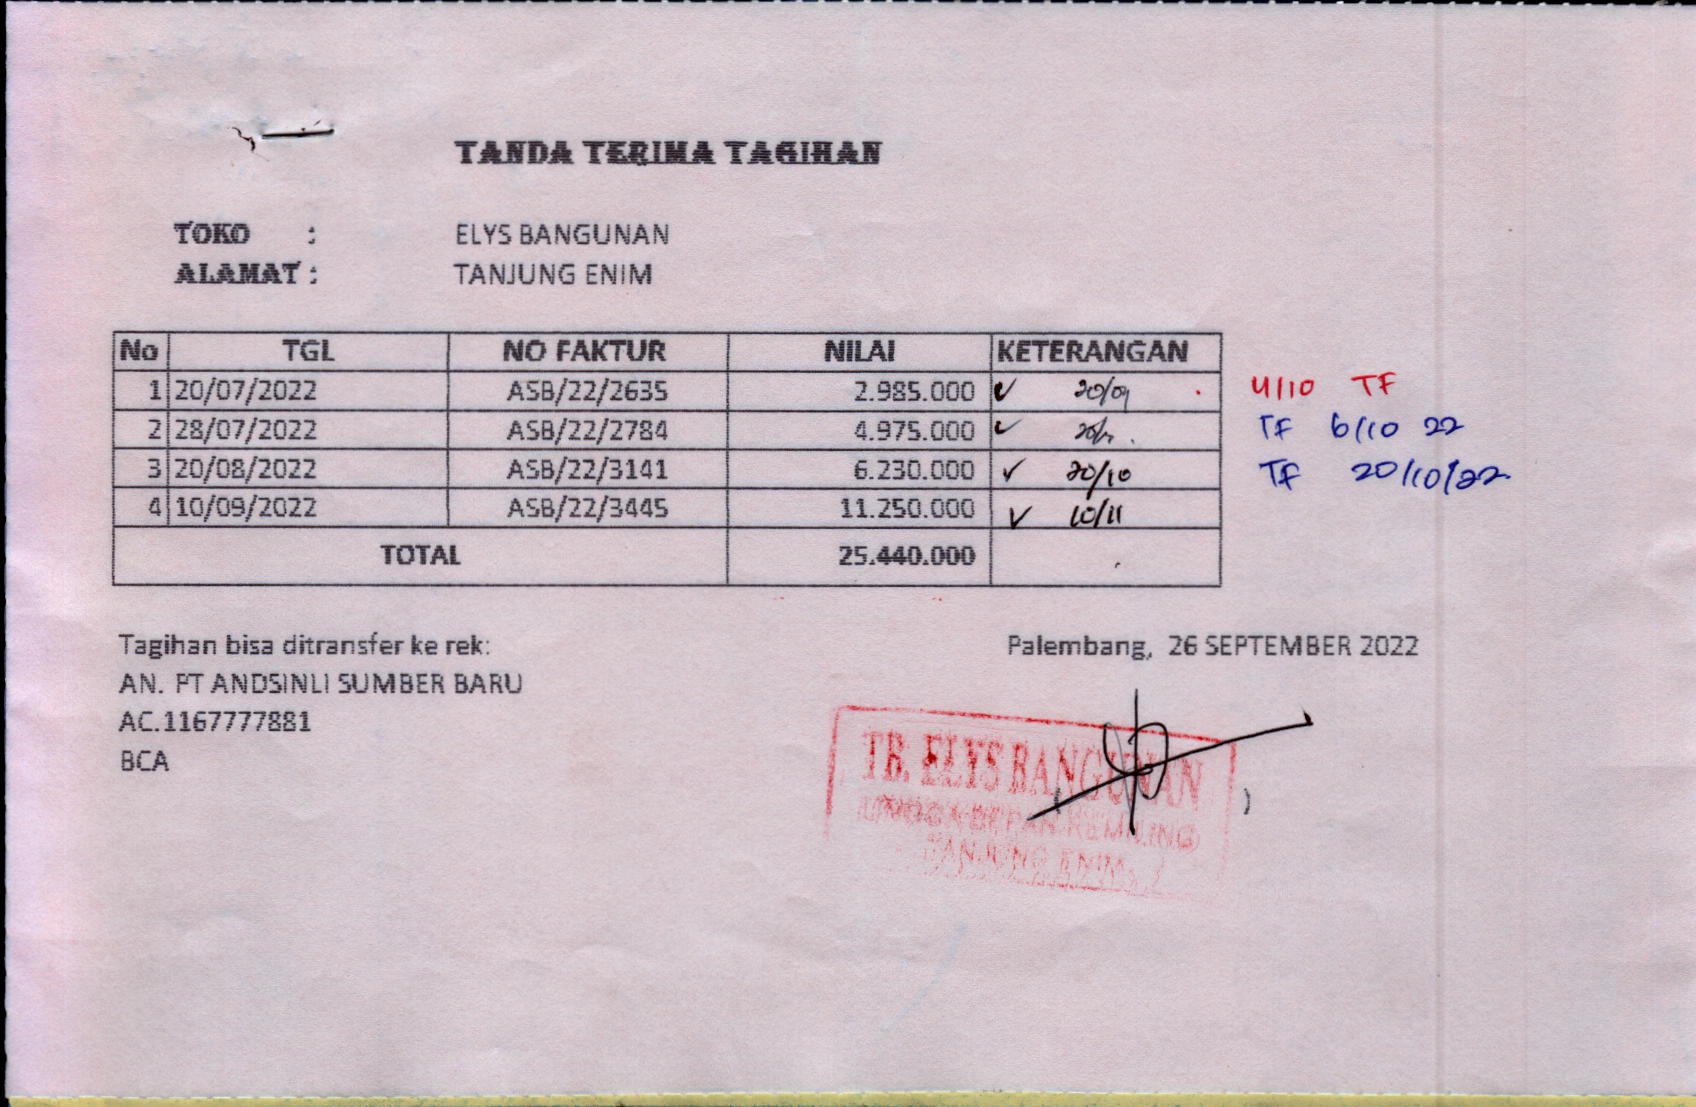 TANDA TERIMA TAGIHAN
TOKO : ELYS BANGUNAN
ALAMAT : TANJUNG ENIM
No TGL NO FAKTUR NILAI KETERANGAN
1 20/07/2022 ASB/22/2635 2.985.000 ✓ 20/09 4/10 TF
2 28/07/2022 ASB/22/2784 4.975.000 ✓ TF 6/10 22
3 20/08/2022 ASB/22/3141 6.230.000 ✓ 20/10 TF 20/10/22
4 10/09/2022 ASB/22/3445 11.250.000 ✓ 10/11
TOTAL 25.440.000
Tagihan bisa ditransfer ke rek: Palembang, 26 SEPTEMBER 2022
AN. PT ANDSINLI SUMBER BARU
AC.1167777881
BCA
TB. ELYS BANGUNAN
TANJUNG ENIM